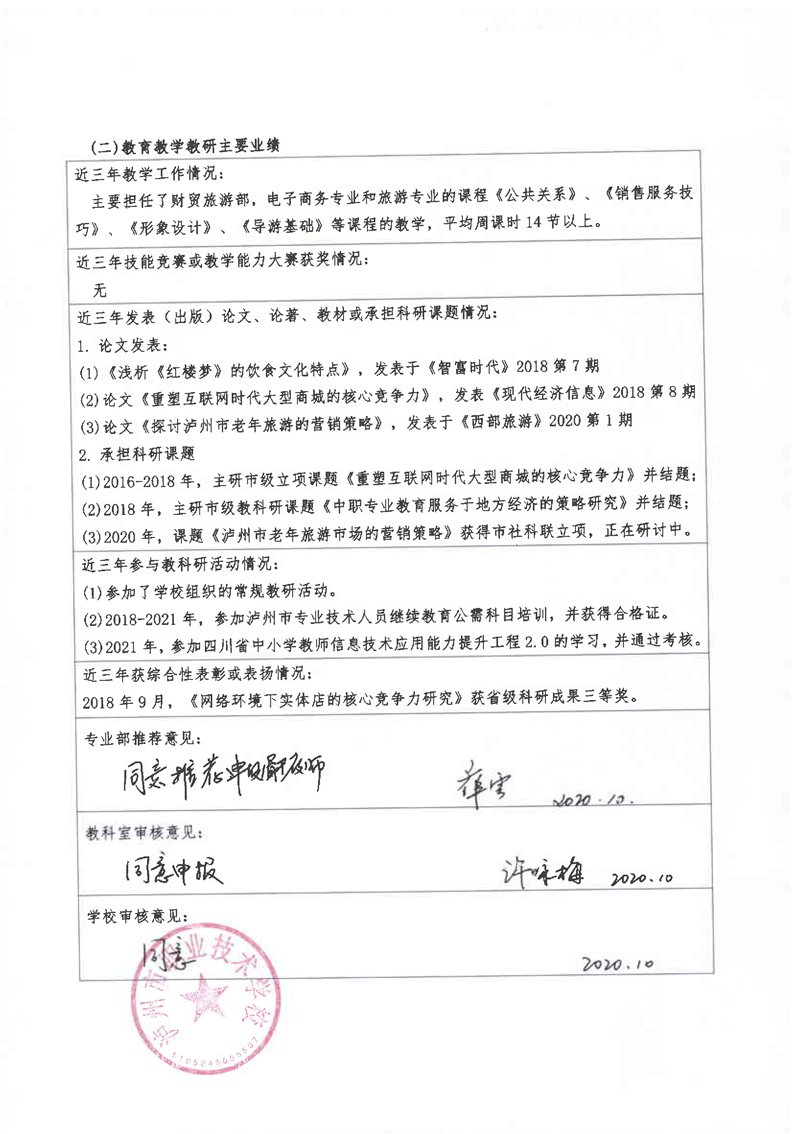 (二)教育教学教研主要业绩
近三年教学工作情况：
主要担任了财贸旅游部，电子商务专业和旅游专业的课程《公共关系》、《销售服务技
巧》、《形象设计》、《导游基础》等课程的教学，平均周课时14节以上。
近三年技能竞赛或教学能力大赛获奖情况：
无
近三年发表（出版）论文、论著、教材或承担科研课题情况：
1. 论文发表：
(1)《浅析《红楼梦》的饮食文化特点》，发表于《智富时代》2018第7期
(2)论文《重塑互联网时代大型商城的核心竞争力》，发表《现代经济信息》2018第8期
(3)论文《探讨泸州市老年旅游的营销策略》，发表于《西部旅游》2020第1期
2. 承担科研课题
(1)2016-2018年，主研市级立项课题《重塑互联网时代大型商城的核心竞争力》并结题；
(2)2018年，主研市级教科研课题《中职专业教育服务于地方经济的策略研究》并结题；
(3)2020年，课题《泸州市老年旅游市场的营销策略》获得市社科联立项，正在研讨中。
近三年参与教科研活动情况：
(1)参加了学校组织的常规教研活动。
(2)2018-2021年，参加泸州市专业技术人员继续教育公需科目培训，并获得合格证。
(3)2021年，参加四川省中小学教师信息技术应用能力提升工程2.0的学习，并通过考核。
近三年获综合性表彰或表扬情况：
2018年9月，《网络环境下实体店的核心竞争力研究》获省级科研成果三等奖。
专业部推荐意见：
同意推荐申报 教师
2020.10.
教科室审核意见：
同意申报
许咏梅 2020.10
学校审核意见：
同意
2020.10
泸州市职业技术学校